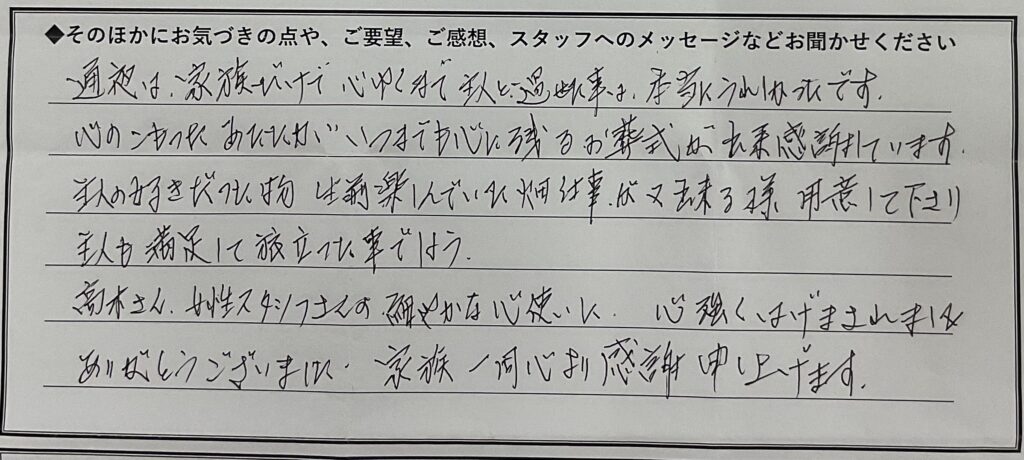 ◆そのほかにお気づきの点や、ご要望、ご感想、スタッフへのメッセージなどお聞かせください
通夜は、家族だけで心ゆくまで主人と過せた事は、本当にうれしかったです。
心のこもったあたたかいいつまでも心に残るお葬式が出来感謝しています。
主人の好きだった物 生前楽しんでいた畑仕事が又出来る様 用意して下さり
主人も満足して旅立った事でしょう。
高木さん、女性スタッフさんの細やかな心使いに 心強くはげまされました
ありがとうございました。家族一同心より感謝申し上げます。